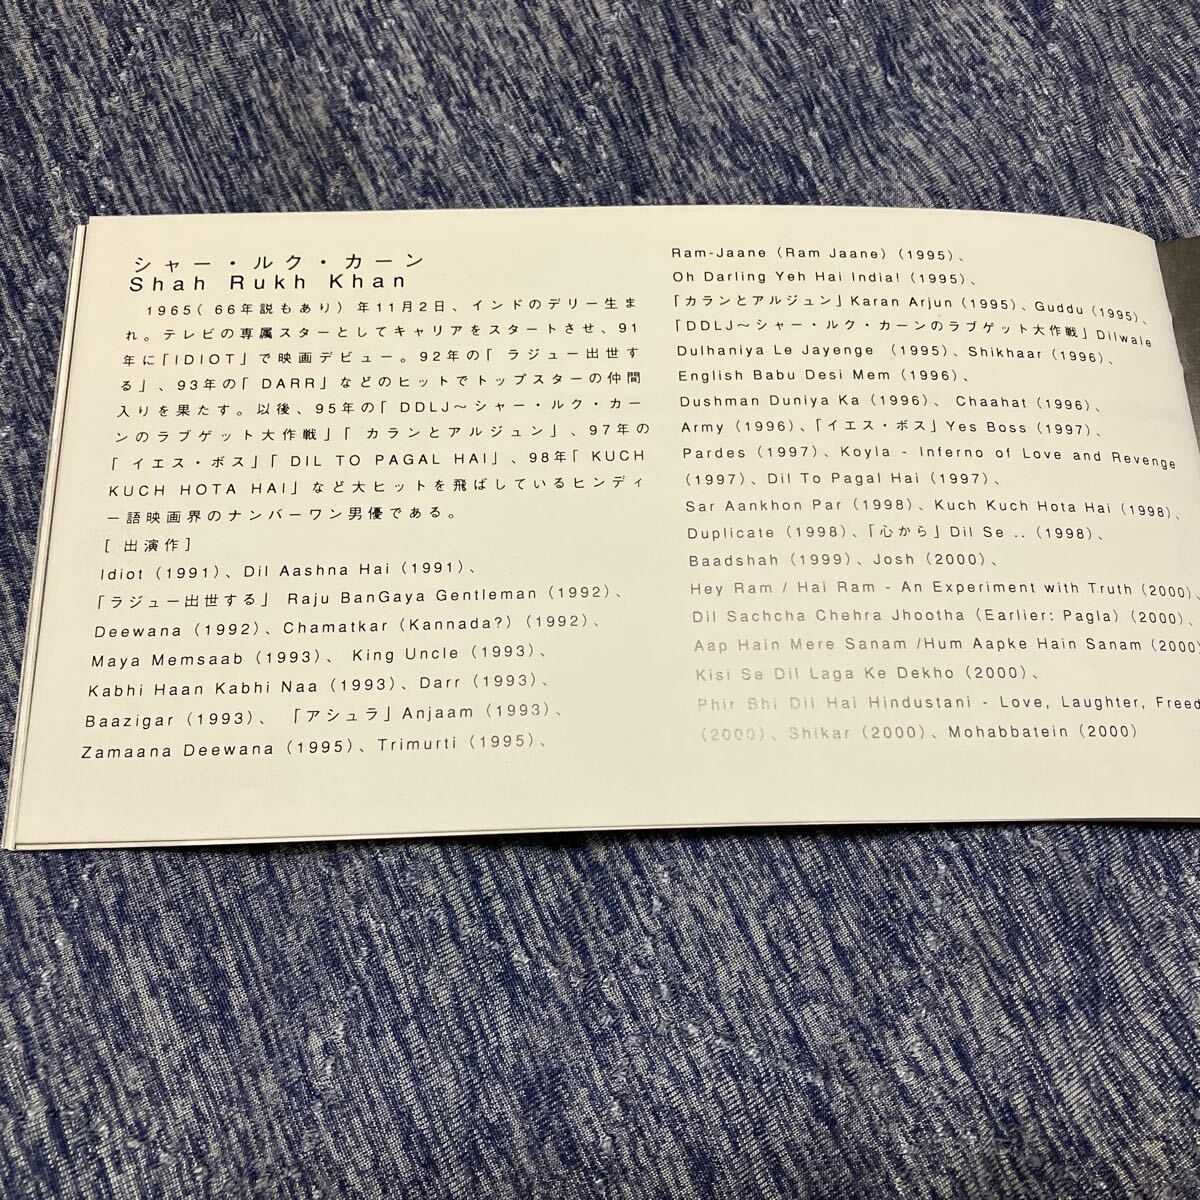 シャー・ルク・カーン
Shah Rukh Khan
1965(66年説もあり)年11月2日、インドのデリー生ま
れ。テレビの専属スターとしてキャリアをスタートさせ、91
年に「IDIOT」で映画デビュー。92年の「ラジュー出世す
る」、93年の「DARR」などのヒットでトップスターの仲間
入りを果たす。以後、95年の「DDLJ～シャー・ルク・カー
ンのラブゲット大作戦」「カランとアルジュン」、97年の
「イエス・ボス」「DIL TO PAGAL HAI」、98年「KUCH
KUCH HOTA HAI」など大ヒットを飛ばしているヒンディ
ー語映画界のナンバーワン男優である。
[出演作]
Idiot (1991)、Dil Aashna Hai (1991)、
「ラジュー出世する」 Raju BanGaya Gentleman (1992)、
Deewana (1992)、Chamatkar (Kannada?) (1992)、
Maya Memsaab (1993)、 King Uncle (1993)、
Kabhi Haan Kabhi Naa (1993)、Darr (1993)、
Baazigar (1993)、 「アシュラ」Anjaam (1993)、
Zamaana Deewana (1995)、Trimurti (1995)、
Ram-Jaane (Ram Jaane) (1995)、
Oh Darling Yeh Hai India! (1995)、
「カランとアルジュン」Karan Arjun (1995)、Guddu (1995)、
「DDLJ～シャー・ルク・カーンのラブゲット大作戦」Dilwale
Dulhaniya Le Jayenge (1995)、Shikhaar (1996)、
English Babu Desi Mem (1996)、
Dushman Duniya Ka (1996)、 Chaahat (1996)、
Army (1996)、「イエス・ボス」Yes Boss (1997)、
Pardes (1997)、Koyla - Inferno of Love and Revenge
(1997)、Dil To Pagal Hai (1997)、
Sar Aankhon Par (1998)、Kuch Kuch Hota Hai (1998)、
Duplicate (1998)、「心から」Dil Se .. (1998)、
Baadshah (1999)、Josh (2000)、
Hey Ram / Hai Ram - An Experiment with Truth (2000)、
Dil Sachcha Chehra Jhootha (Earlier: Pagla) (2000)、
Aap Hain Mere Sanam /Hum Aapke Hain Sanam (2000)
Kisi Se Dil Laga Ke Dekho (2000)、
Phir Bhi Dil Hai Hindustani - Love, Laughter, Freed
(2000)、Shikar (2000)、Mohabbatein (2000)